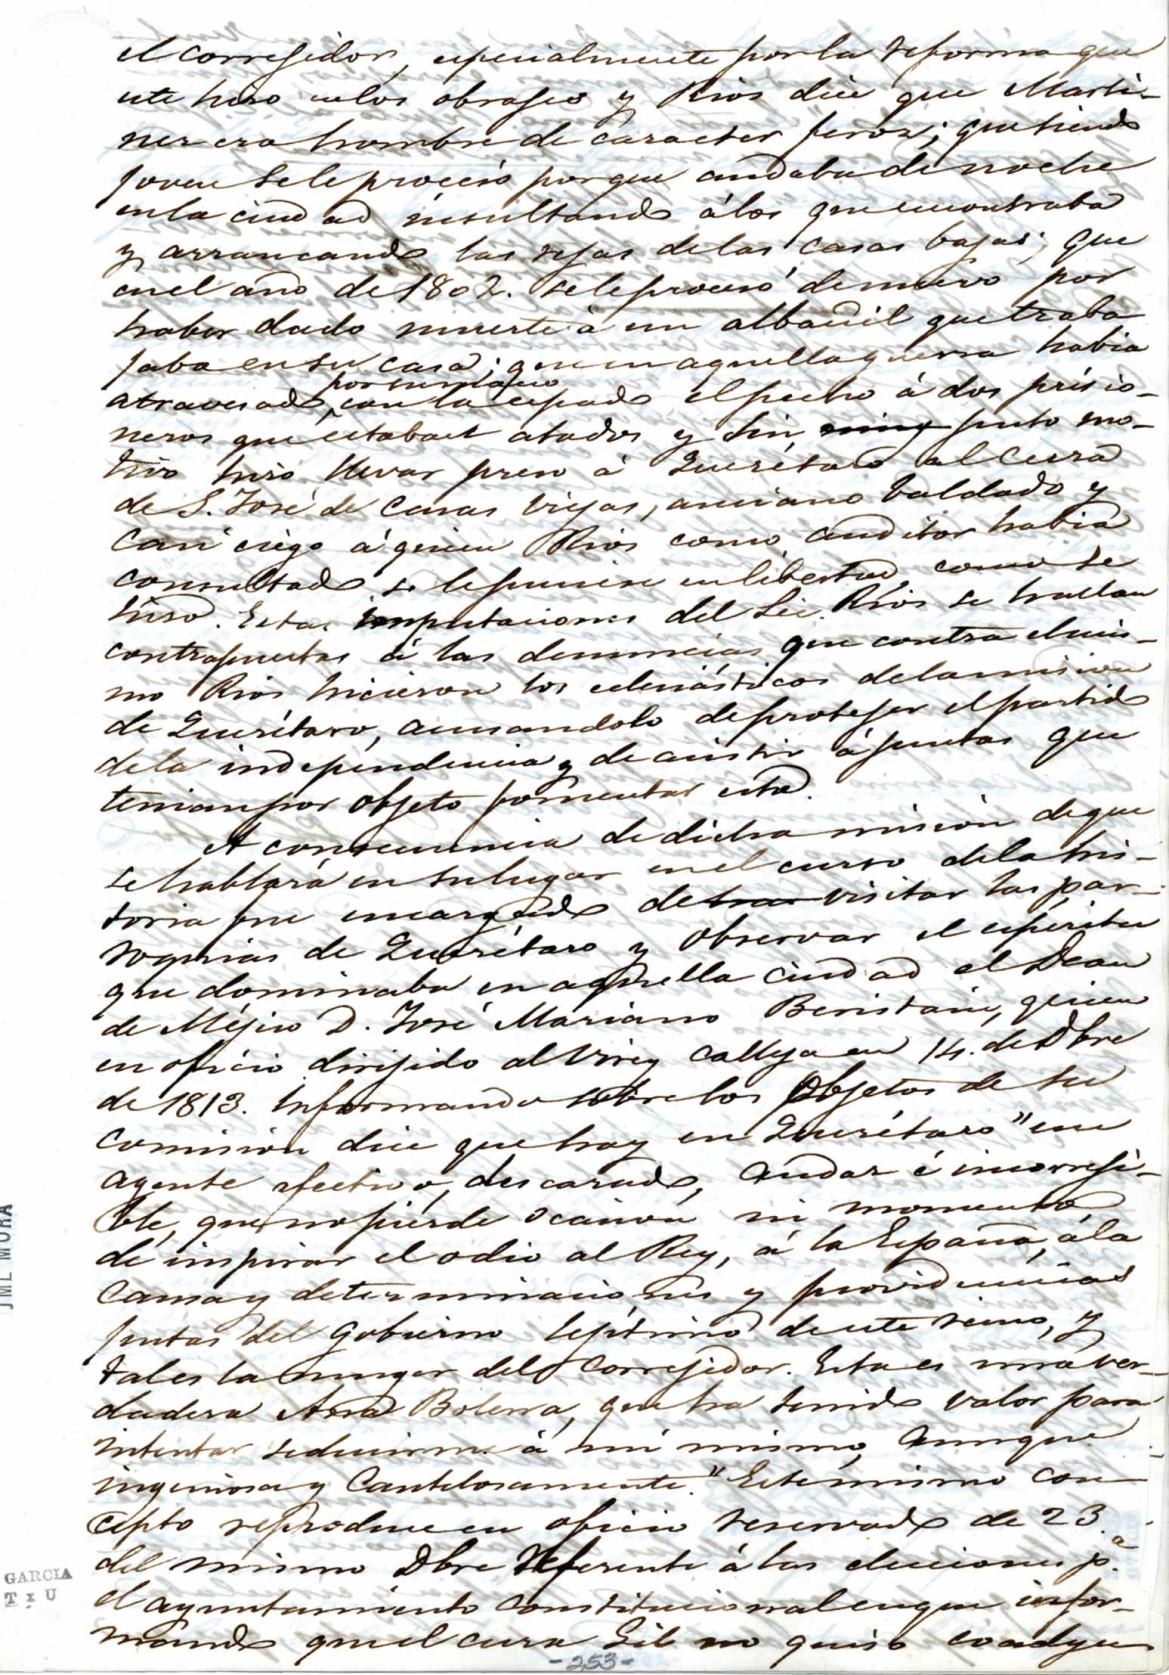 el corregidor, especialmente por la reforma que
este hiso en los obrages y Rios dice que Marti-
nez era hombre de caracter feroz; que siendo
joven se le procesó porque andaba de noche
en la ciudad insultando á los que encontraba
y arrancando las rejas de las casas bajas; que
en el año de 1802. se le procesó de nuevo por
haber dado muerte à un albañil que traba
jaba en su casa; que en aquella guerra habia
por su mano
atravesado con la espada el pecho á dos prisio-
neros que estaban atados y sin ning justo mo-
tivo hiso llevar preso à Querétaro al Cura
de S. José de Casas Viejas, anciano baldado y
casi ciego á quien Rios como auditor habia
consultado se le pusiese en libertad, como se
hiso. Estas imputaciones del Lic. Rios se hallan
contrapuestas á las denuncias que contra el mis-
mo Rios hicieron los eclesiásticos de la mision
de Querétaro, acusandolo de protejer el partido
de la independencia y de asistir á juntas que
tenian por objeto fomentar esta.
A consecuencia de dicha mision de que
se hablará en su lugar en el curso de la his-
toria fue encargado de visitar las par-
roquias de Querétaro y observar el espiritu
que dominaba en aquella ciudad el Dean
de Méjico D. José Mariano Beristain, quien
en oficio dirijido al Virey Calleja en 14. de Dbre
de 1813. informando sobre los objetos de su
comision dice que hay en Querétaro "un
agente efectivo, descarado, audaz é incorregi-
ble, que no pierde ocasion ni momento
de inspirar el odio al Rey, á la España, á la
Causa y determinaciones y providencias
justas del gobierno legitimo de este reino, y
tal es la muger del corregidor. Esta es una ver-
dadera Ana Bolena, que ha tenido valor para
intentar seducirme á mi mismo, aunque
ingeniosa y cautelosamente." Este mismo con-
cepto reproduce en oficio reservado de 23.
del mismo Dbre referente á las elecciones p.ª
el ayuntamiento constitucional en que infor-
mando que el cura Gil no quiso coadyu
-253-
JML MORA
GARCIA